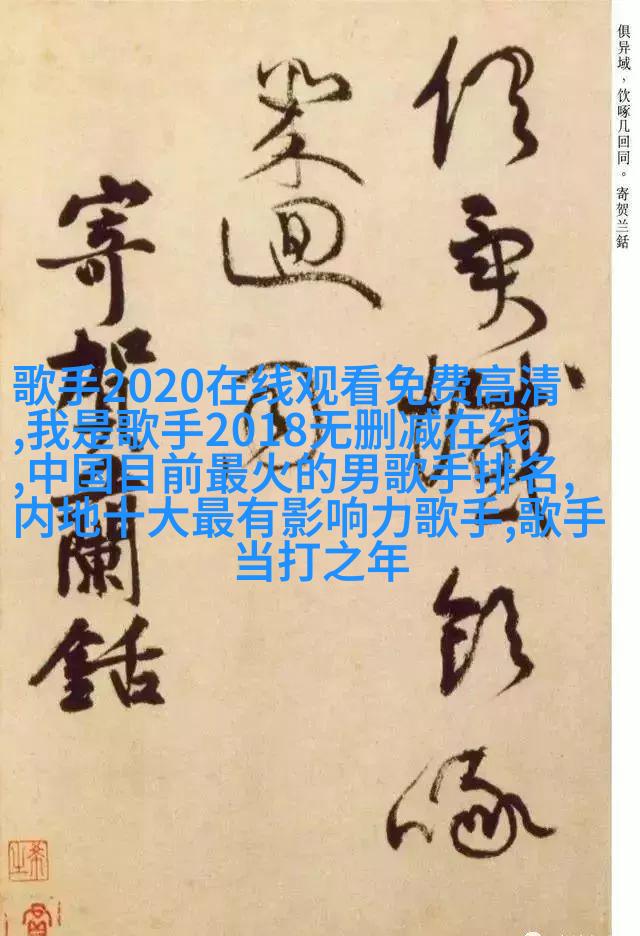 俱异域，饮啄几回同。寄贺兰銛
俱異域飲啄
幾迴同
寄賀蘭銛
歌手2020在线观看免费高清
,我是歌手2018无删减在线
,中国目前最火的男歌手排名,
内地十大最有影响力歌手,歌手
当打之年